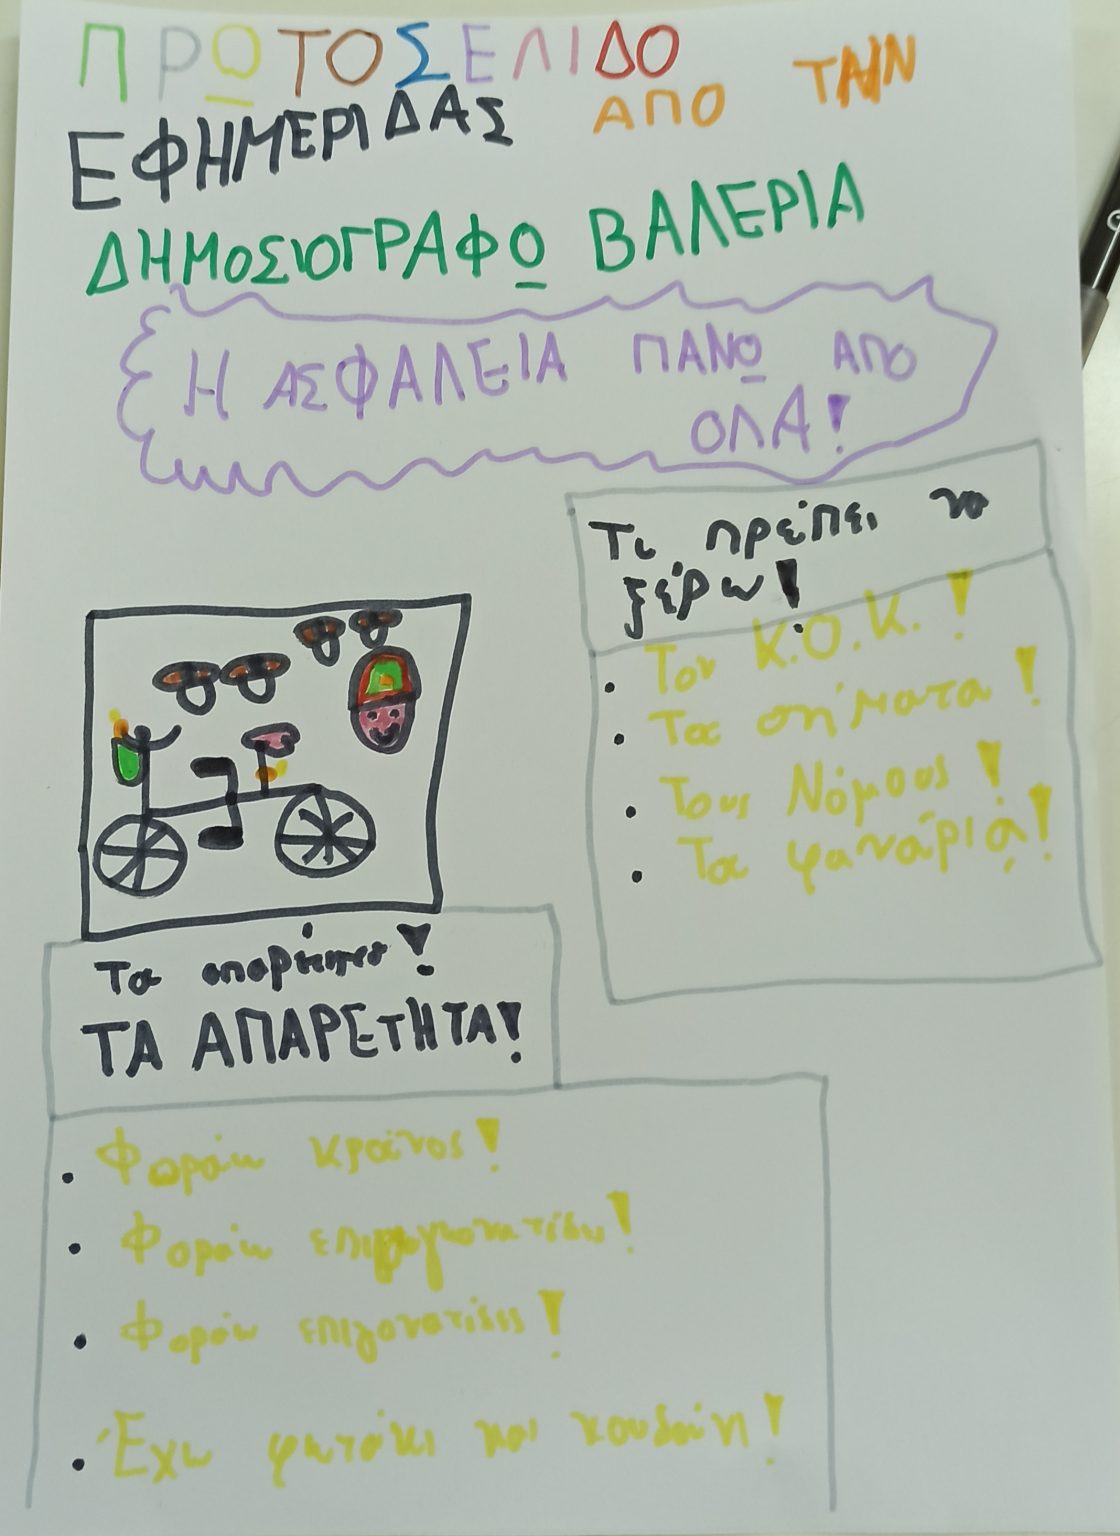 ΠΡΩΤΟΣΕΛΙΔΟ
ΕΦΗΜΕΡΙΔΑΣ ΑΠΟ ΤΗΝ
ΔΗΜΟΣΙΟΓΡΑΦΟ ΒΑΛΕΡΙΑ
Η ΑΣΦΑΛΕΙΑ ΠΑΝΩ ΑΠΟ
ΟΛΑ!
Τι πρέπει να
ξέρω!
• Τον Κ.Ο.Κ.!
• Τα σήματα!
• Τους Νόμους!
• Τα φανάρια!
Τα
ΤΑ ΑΠΑΡΕΤΗΤΑ!
• Φοράω κράνος!
• Φοράω
• Φοράω επιγονατίδες!
• Έχω φωτάκι και κουδούνι!